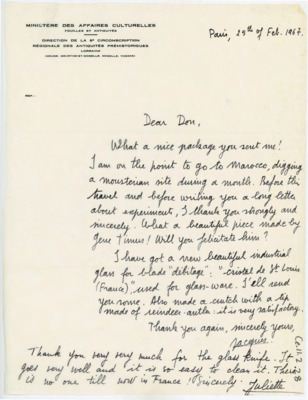 MINISTÈRE DES AFFAIRES CULTURELLES
FOUILLES ET ANTIQUITÉS
DIRECTION DE LA 6e CIRCONSCRIPTION
RÉGIONALE DES ANTIQUITÉS PRÉHISTORIQUES
LORRAINE
(MEUSE, MEURTHE-ET-MOSELLE, MOSELLE, VOSGES)
Paris, 25th of Feb. 1967.
Dear Don,
What a nice package you sent me!
I am on the point to go to Marocco, digging
a mousterian site during a month. Before this
travel and before writing you a long letter
about experiments, I thank you strongly and
sincerely. What a beautiful piece made by
Gene Titmus! Will you felicitate him?
I have got a new beautiful industrial
glass for blade "débitage": "cristal de St Louis
(France)," used for glass-ware. I'll send
you some. Also made a crutch with a tip
made of reindeer-antler: it is very satisfactory.
Thank you again, sincerely yours,
Jacques.
Thank you very very much for the glass knife. It
goes very well and it is so easy to clear it. There's
is no one till now in France! Sincerely - Juliette